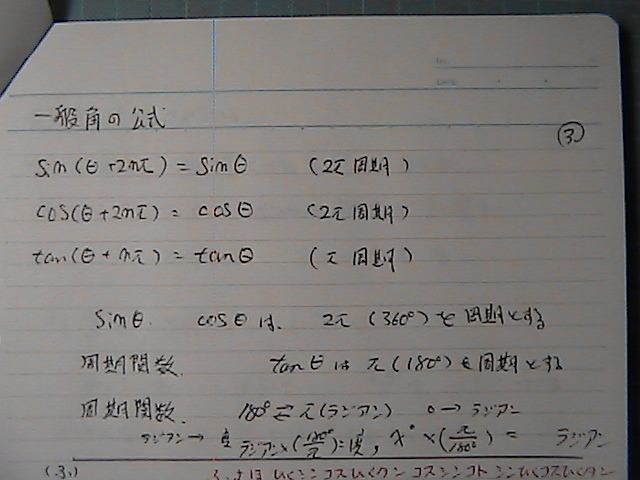 一般角の公式
③
sin(θ+2nπ)=sinθ (2π周期)
cos(θ+2nπ)=cosθ (2π周期)
tan(θ+nπ)=tanθ (π周期)
sinθ. cosθは、 2π(360°)を周期とする
周期関数. tanθはπ(180°)を周期とする
周期関数. 180°⇄π(ラジアン) °→ラジアン
ラジアン→度 ラジアン×(180°/π)=度, x°×(π/180°)= ラジアン
(.3.)